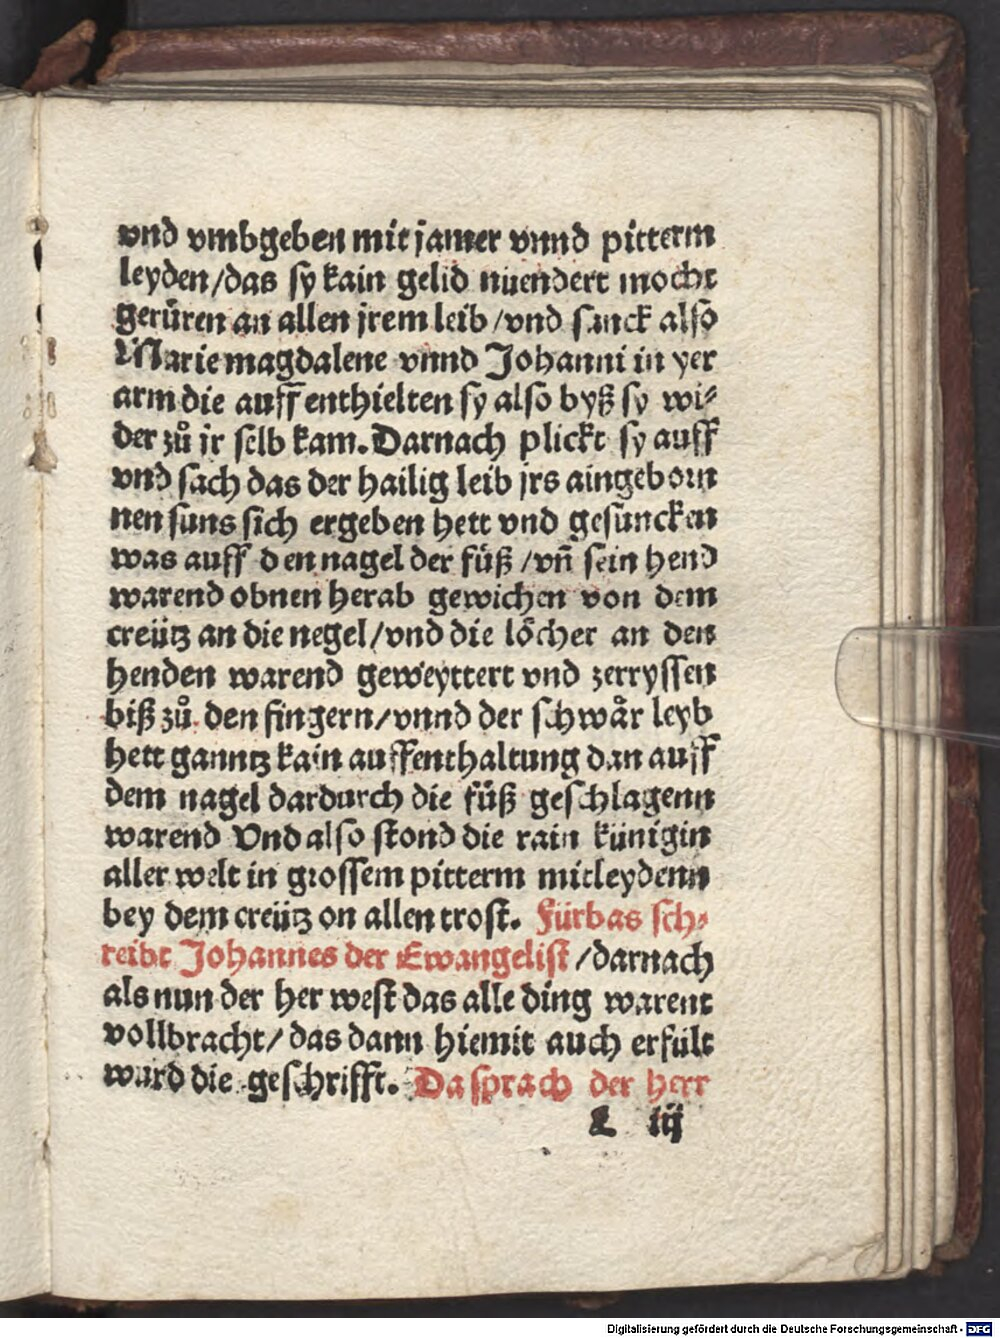 vnd vmbgeben mit jamer vnnd pitterm
leyden/das sy kain gelid niiendert mocht
gerüren an allen jrem leib/vnd sanck also
Marie magdalene vnnd Johanni in yer
arm die auff enthielten sy also byß sy wi⸗
der zů jr selb kam. Darnach plickt sy auff
vnd sach das der hailig leib jrs aingeborn
nen suns sich ergeben hett vnd gesuncken
was auff den nagel der füß/vñ sein hend
warend obnen herab gewichen von dem
creütz an die negel/vnd die löcher an den
henden warend geweyttert vnd zerryssen
biß zů den fingern/vnnd der schwår leyb
hett ganntz kain auffenthaltung dan auff
dem nagel dardurch die füß geschlagenn
warend Vnd also stond die rain künigin
aller welt in grossem pitterm mitleydenn
bey dem creütz on allen trost. Fürbas sch⸗
reibt Johannes der Ewangelist/darnach
als nun der her west das alle ding warent
vollbracht/das dann hiemit auch erfült
wurd die geschrifft. Da sprach der herr
iij
Digitalisierung gefördert durch die Deutsche Forschungsgemeinschaft - DFG